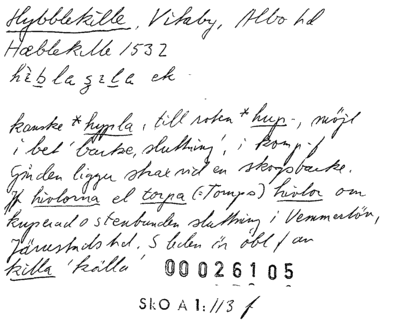 Hybblekille, Vitaby, Albo hd
Hæblekille 1532
hèblagela ek
kanske *hypla, till roten *hup-, möjl
i bet 'backe, sluttning', i komp-f
Gården ligger strax vid en skogsbacke.
Jf hivlorna el torpa (=Tomps) hivlor om
kuperad o stenbunden sluttning i Vemmerlöv,
Järrestads hd. S leden är obl f av
killa 'källa'
00026105
SKO A 1:113 f